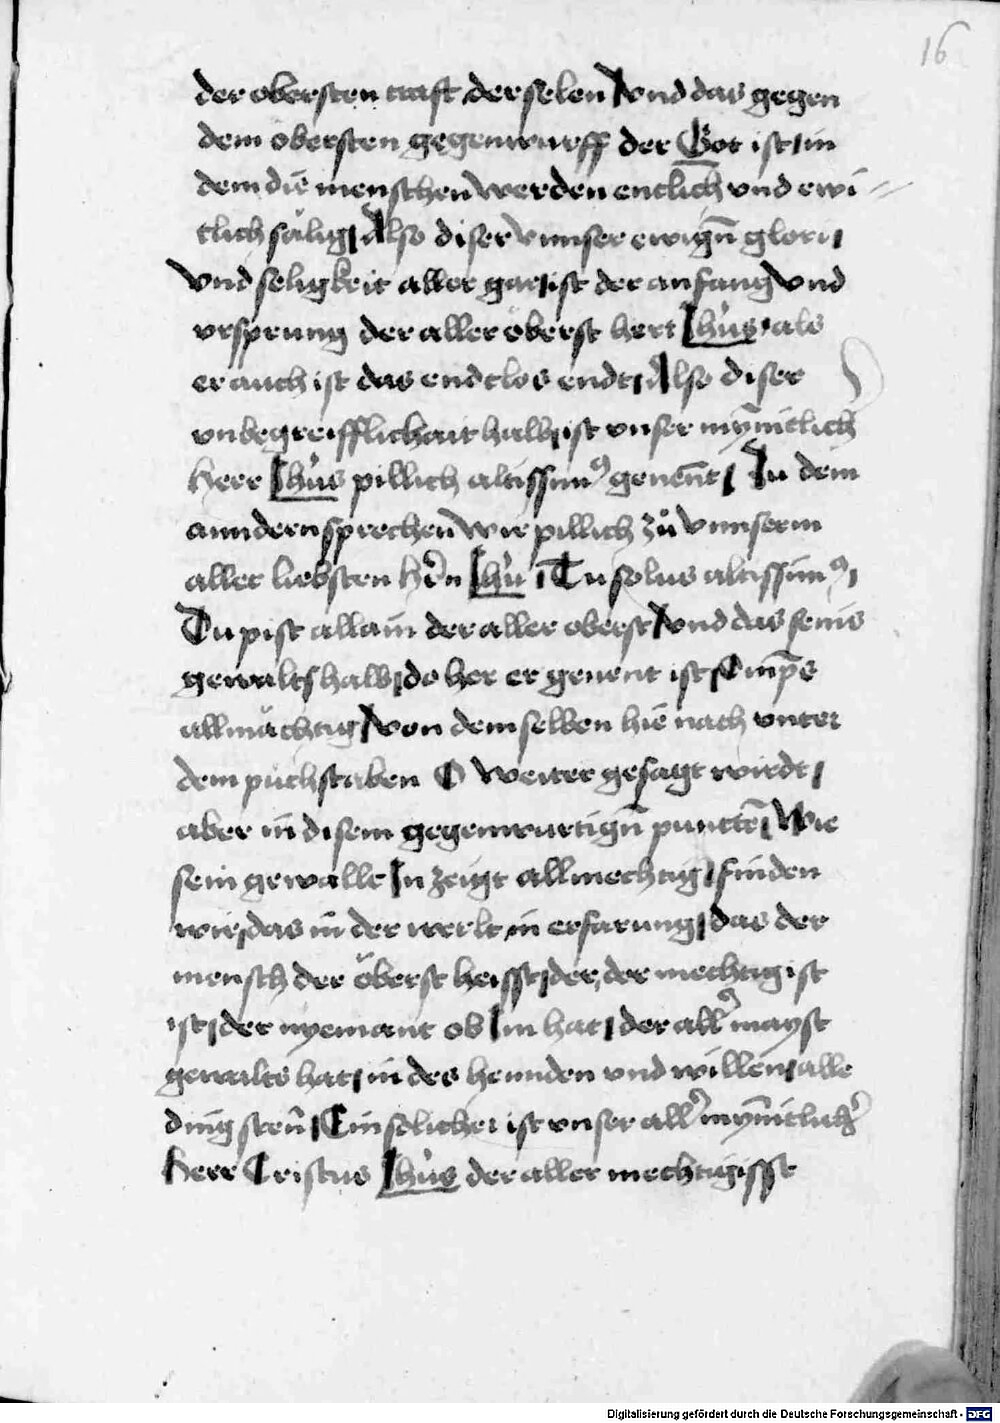 16
der obersten craft der selen / vnd das gegen
dem obersten gegenwurff der Got ist / in
dem die menschen werden entlich vnd ewi=
clich sälig / Also diser vnnser ewigñ glori /
vnd seligkeit aller gar ist der anfang vnd
vrsprung der aller öberst herr Ihũs als
er auch ist das endtlos endt / Also diser
vnbegreifflichait halb / ist vnser mynnitlich
herr Ihũs pillich altissim9 genent / In dem
anndern sprechen wir pillich zů vnnserm
aller liebsten hern Ihũ / Tu solus altissim9 /
Du pist allain der aller oberst / vnd das seins
gewalts halb / do her er genent ist / Omps
allmächtig / von dem selben hie nach vnter
dem půchstaben O weiter gesagt wirdt /
aber in disem gegenwurtigñ puncten / Wie
sein gewallt In zeigt allmechtig / finden
wir das in der werlt in erfarung / das der
mensch der öberst heisst / der, der mechtig ist
ist / der nyemant ob Im hat / der all' mayst
gewalts hat / in des hennden vnd willen / alle
ding sten / Ein solicher ist vnser all' mynnitlich'
herr Cristus Ihũs der aller mechtigisst
Digitalisierung gefördert durch die Deutsche Forschungsgemeinschaft - DFG